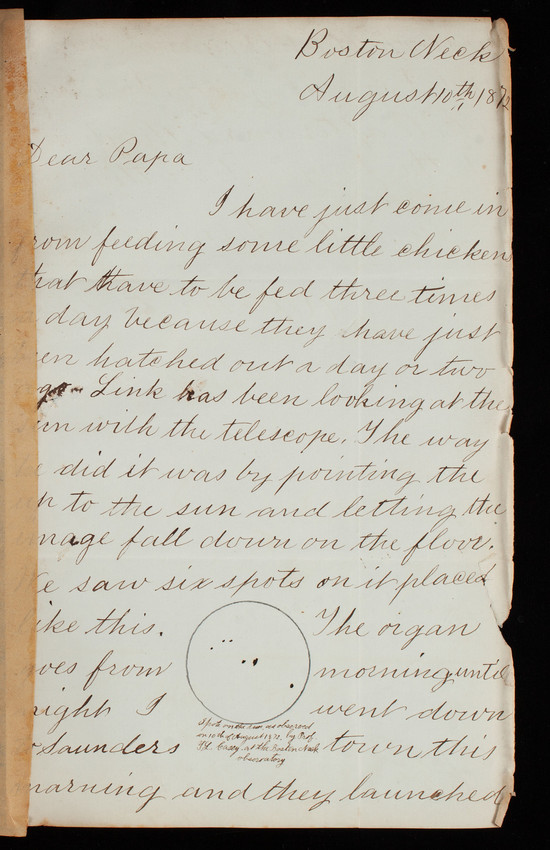 Boston Neck
August 10th, 187
Dear Papa
I have just come in
rom feeding some little chickens
that have to be fed three times
day because they have just
en hatched out a day or two
ago. Link has been looking at the
un with the telescope. The way
e did it was by pointing the
to the sun and letting the
mage fall down on the floor.
He saw six spots on it placed
like this. The organ
oes from morning until
night I went down
Saunders town this
morning and they launched
Spots on the Sun, as observed
on 10th of August 1872, by Prof.
T.L. Casey at the Boston Neck
observatory